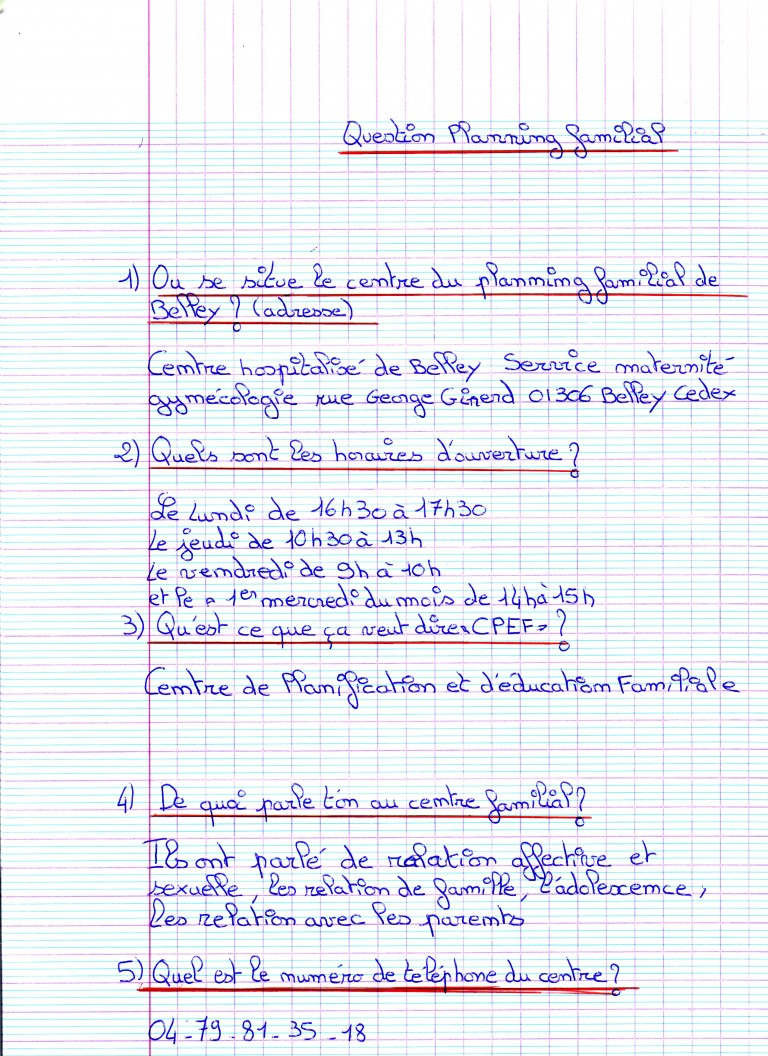 Question Planning familial
1) Ou se situe le centre du planning familial de
Belley ? (adresse)
Centre hospitalisé de Belley Service maternité
gynécologie rue George Girerd 01306 Belley Cedex
2) Quels sont les horaires d'ouverture ?
Le Lundi de 16h30 à 17h30
Le jeudi de 10h30 à 13h
Le vendredi de 9h à 10h
et le 1er mercredi du mois de 14h à 15h
3) Qu'est ce que ça veut dire « CPEF » ?
Centre de Planification et d'éducation Familiale
4) De quoi parle t'on au centre familial ?
Ils ont parlé de relation affective et
sexuelle, les relation de famille, l'adolescence,
les relation avec les parents
5) Quel est le numéro de teléphone du centre ?
04-79-81-35-18